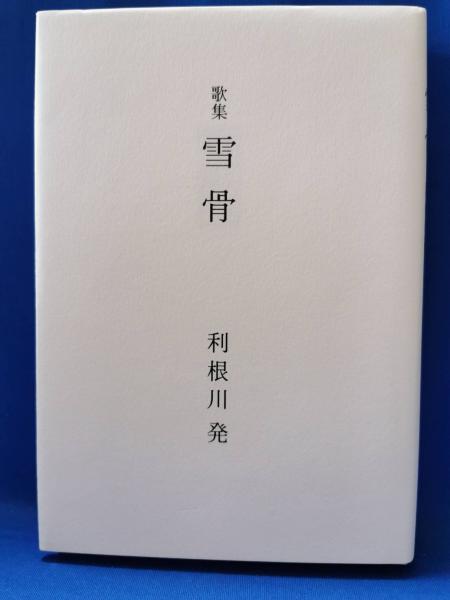 歌集
雪骨
利根川発